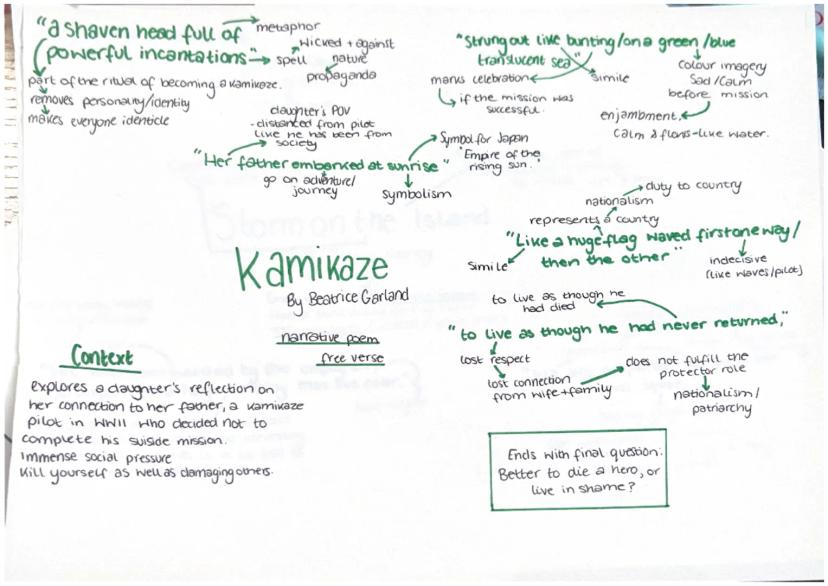 "a shaven head full of
powerful incantations"
metaphor
spell
wicked + against
nature
propaganda
part of the ritual of becoming a kamikaze.
removes personality/identity
makes everyone identicle
daughter's POV
- distanced from pilot
like he has been from
society
"Her father embarked at sunrise"
go on adventure/
journey
symbolism
Symbol for Japan
"Empire of the
rising sun."
"Strung out like bunting/on a green/blue
translucent sea"
marks celebration
if the mission was
successful.
simile
colour imagery
Sad/Calm
before mission
enjambment.
calm & flows-like water.
duty to country
nationalism
represents a country
"Like a huge flag waved first one way/
then the other"
simile
indecisive
(like waves/pilot)
Kamikaze
By Beatrice Garland
narrative poem
free verse
to live as though he
had died
"to live as though he had never returned,"
lost respect
lost connection
from wife+family
does not fulfill the
protector role
nationalism/
patriarchy
Context
explores a daughter's reflection on
her connection to her father, a kamikaze
pilot in WWII who decided not to
complete his suiside mission.
Immense social pressure
Kill yourself as well as damaging others.
Ends with final question:
Better to die a hero, or
live in shame?
Storm on the Island